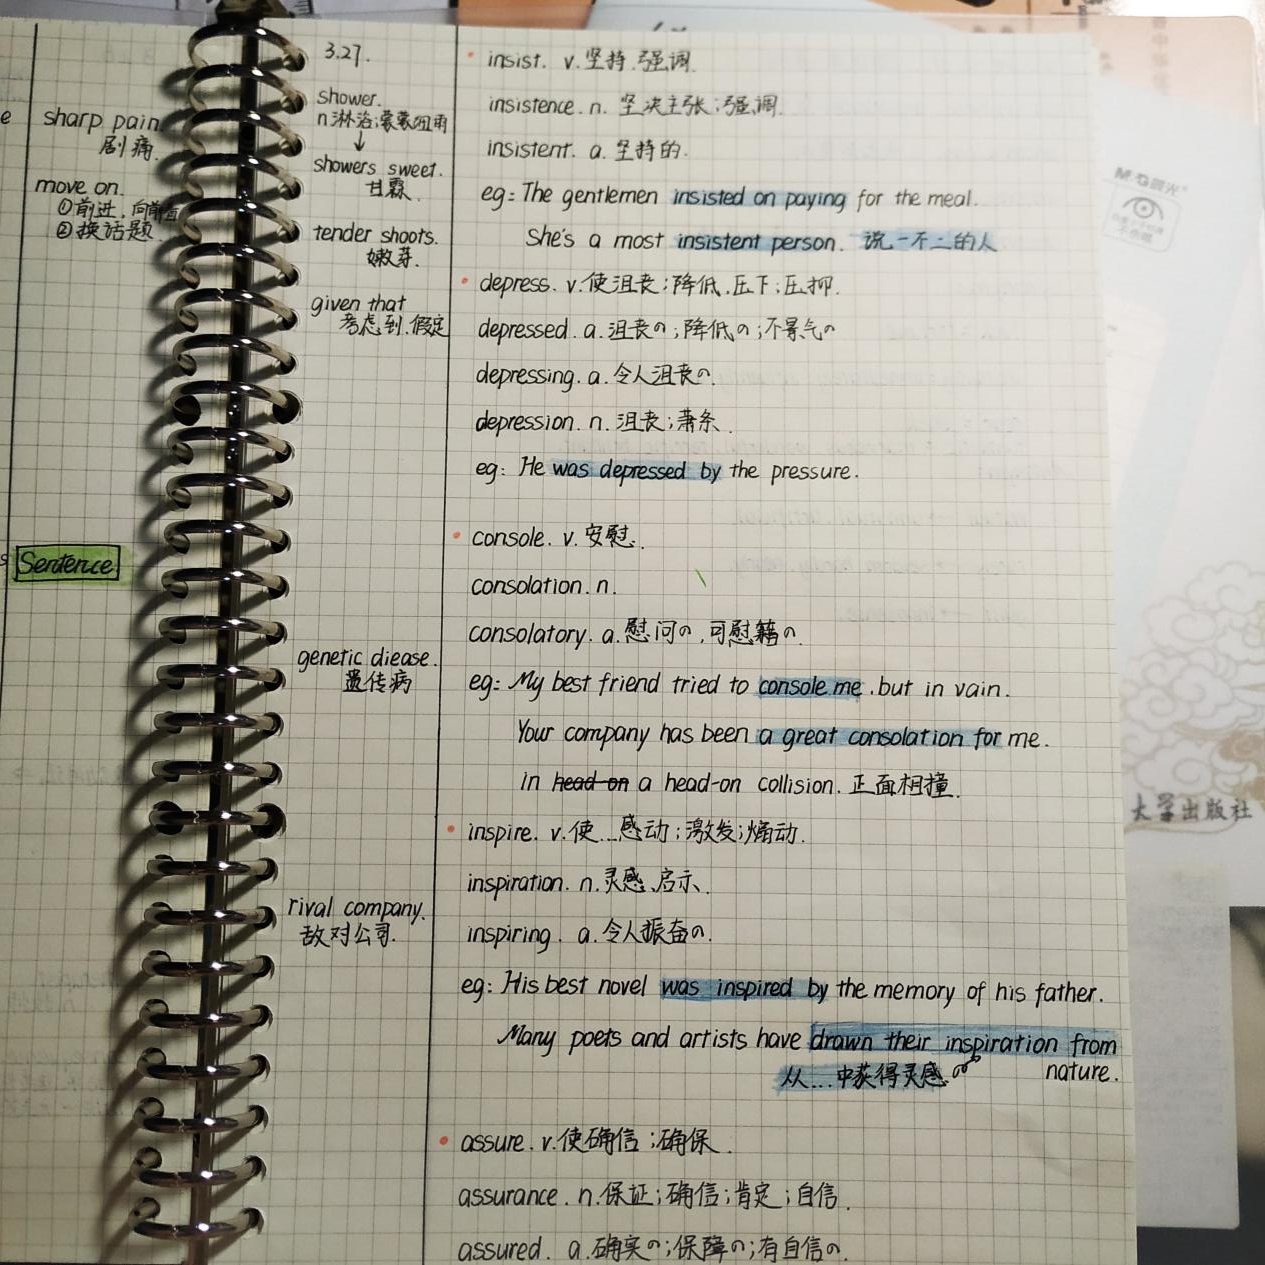 e
sharp pain.
剧痛.
move on.
①前进.向前
②换话题.
s
Sentence
3.27.
shower.
n淋浴;
↓
showers sweet.
甘霖.
tender shoots.
嫩芽.
given that
考虑到.假定
genetic diease.
遗传病
rival company.
敌对公司.
insist. v.坚持.强调.
insistence. n. 坚决主张;强调.
insistent. a. 坚持的.
eg: The gentlemen insisted on paying for the meal.
She's a most insistent person. 说一不二的人
depress. v.使沮丧;降低.压下;压抑.
depressed. a.沮丧の;降低の;不景气の
depressing. a.令人沮丧の.
depression. n. 沮丧;萧条.
eg: He was depressed by the pressure.
console. v.安慰.
consolation. n.
consolatory. a.慰问の,可慰籍の.
eg: My best friend tried to console me. but in vain.
Your company has been a great consolation for me.
in head-on a head-on collision. 正面相撞.
inspire. v.使...感动;激发;煽动.
inspiration. n.灵感.启示.
inspiring. a.令人振奋の.
eg: His best novel was inspired by the memory of his father.
Many poets and artists have drawn their inspiration from
从...中获得灵感. nature.
assure. v.使确信;确保.
assurance. n.保证;确信;肯定;自信.
assured. a.确实の;保障の;有自信の.
M&G晨光
大学出版社